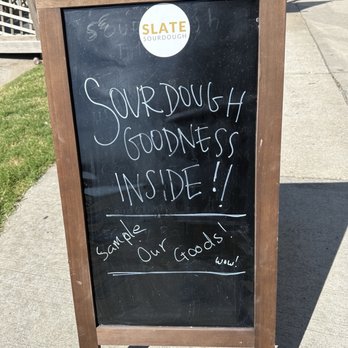 SLATE
SOURDOUGH
SOURDOUGH
GOODNESS
INSIDE!!
Sample
Our Goods!
wow!